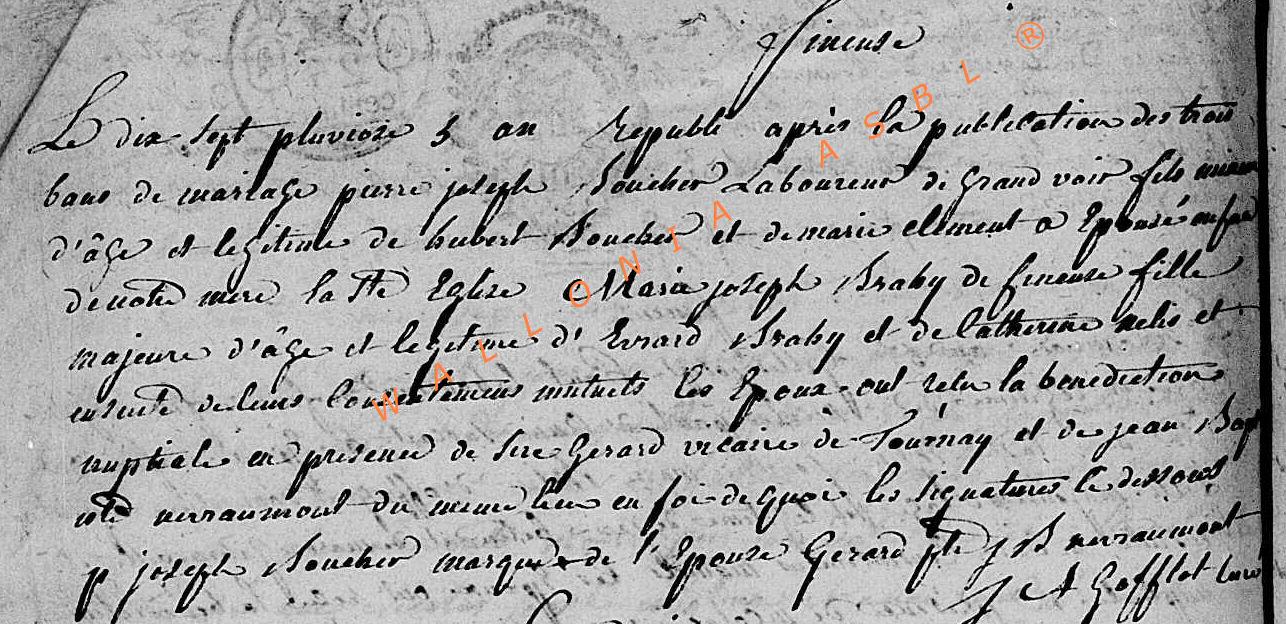 fineuse
Le dix sept pluviose 5 an republi après la publication des trois
bans de mariage pierre joseph Boucher Laboureur de grand voir fils mineur
d'âge et legitime de hubert Boucher et de marie clement a Epousé en face
de notre mere la Ste Eglise Marie joseph Braby de fineuse fille
majeure d'âge et legitime d'Evrard Braby et de Catherine nelis et
ensuite de leurs consentemens mutuels les Epoux ont recu la benediction
nuptiale en presence de sire Gerard vicaire de Tournay et de jean Bap
iste nerraumont du meme lieu en foi de quoi les signatures le dessous
p joseph Boucher marque x de l'Epouse Gerard J B nerraumont
J A Gofflot curé
WALLONIA ASBL ®